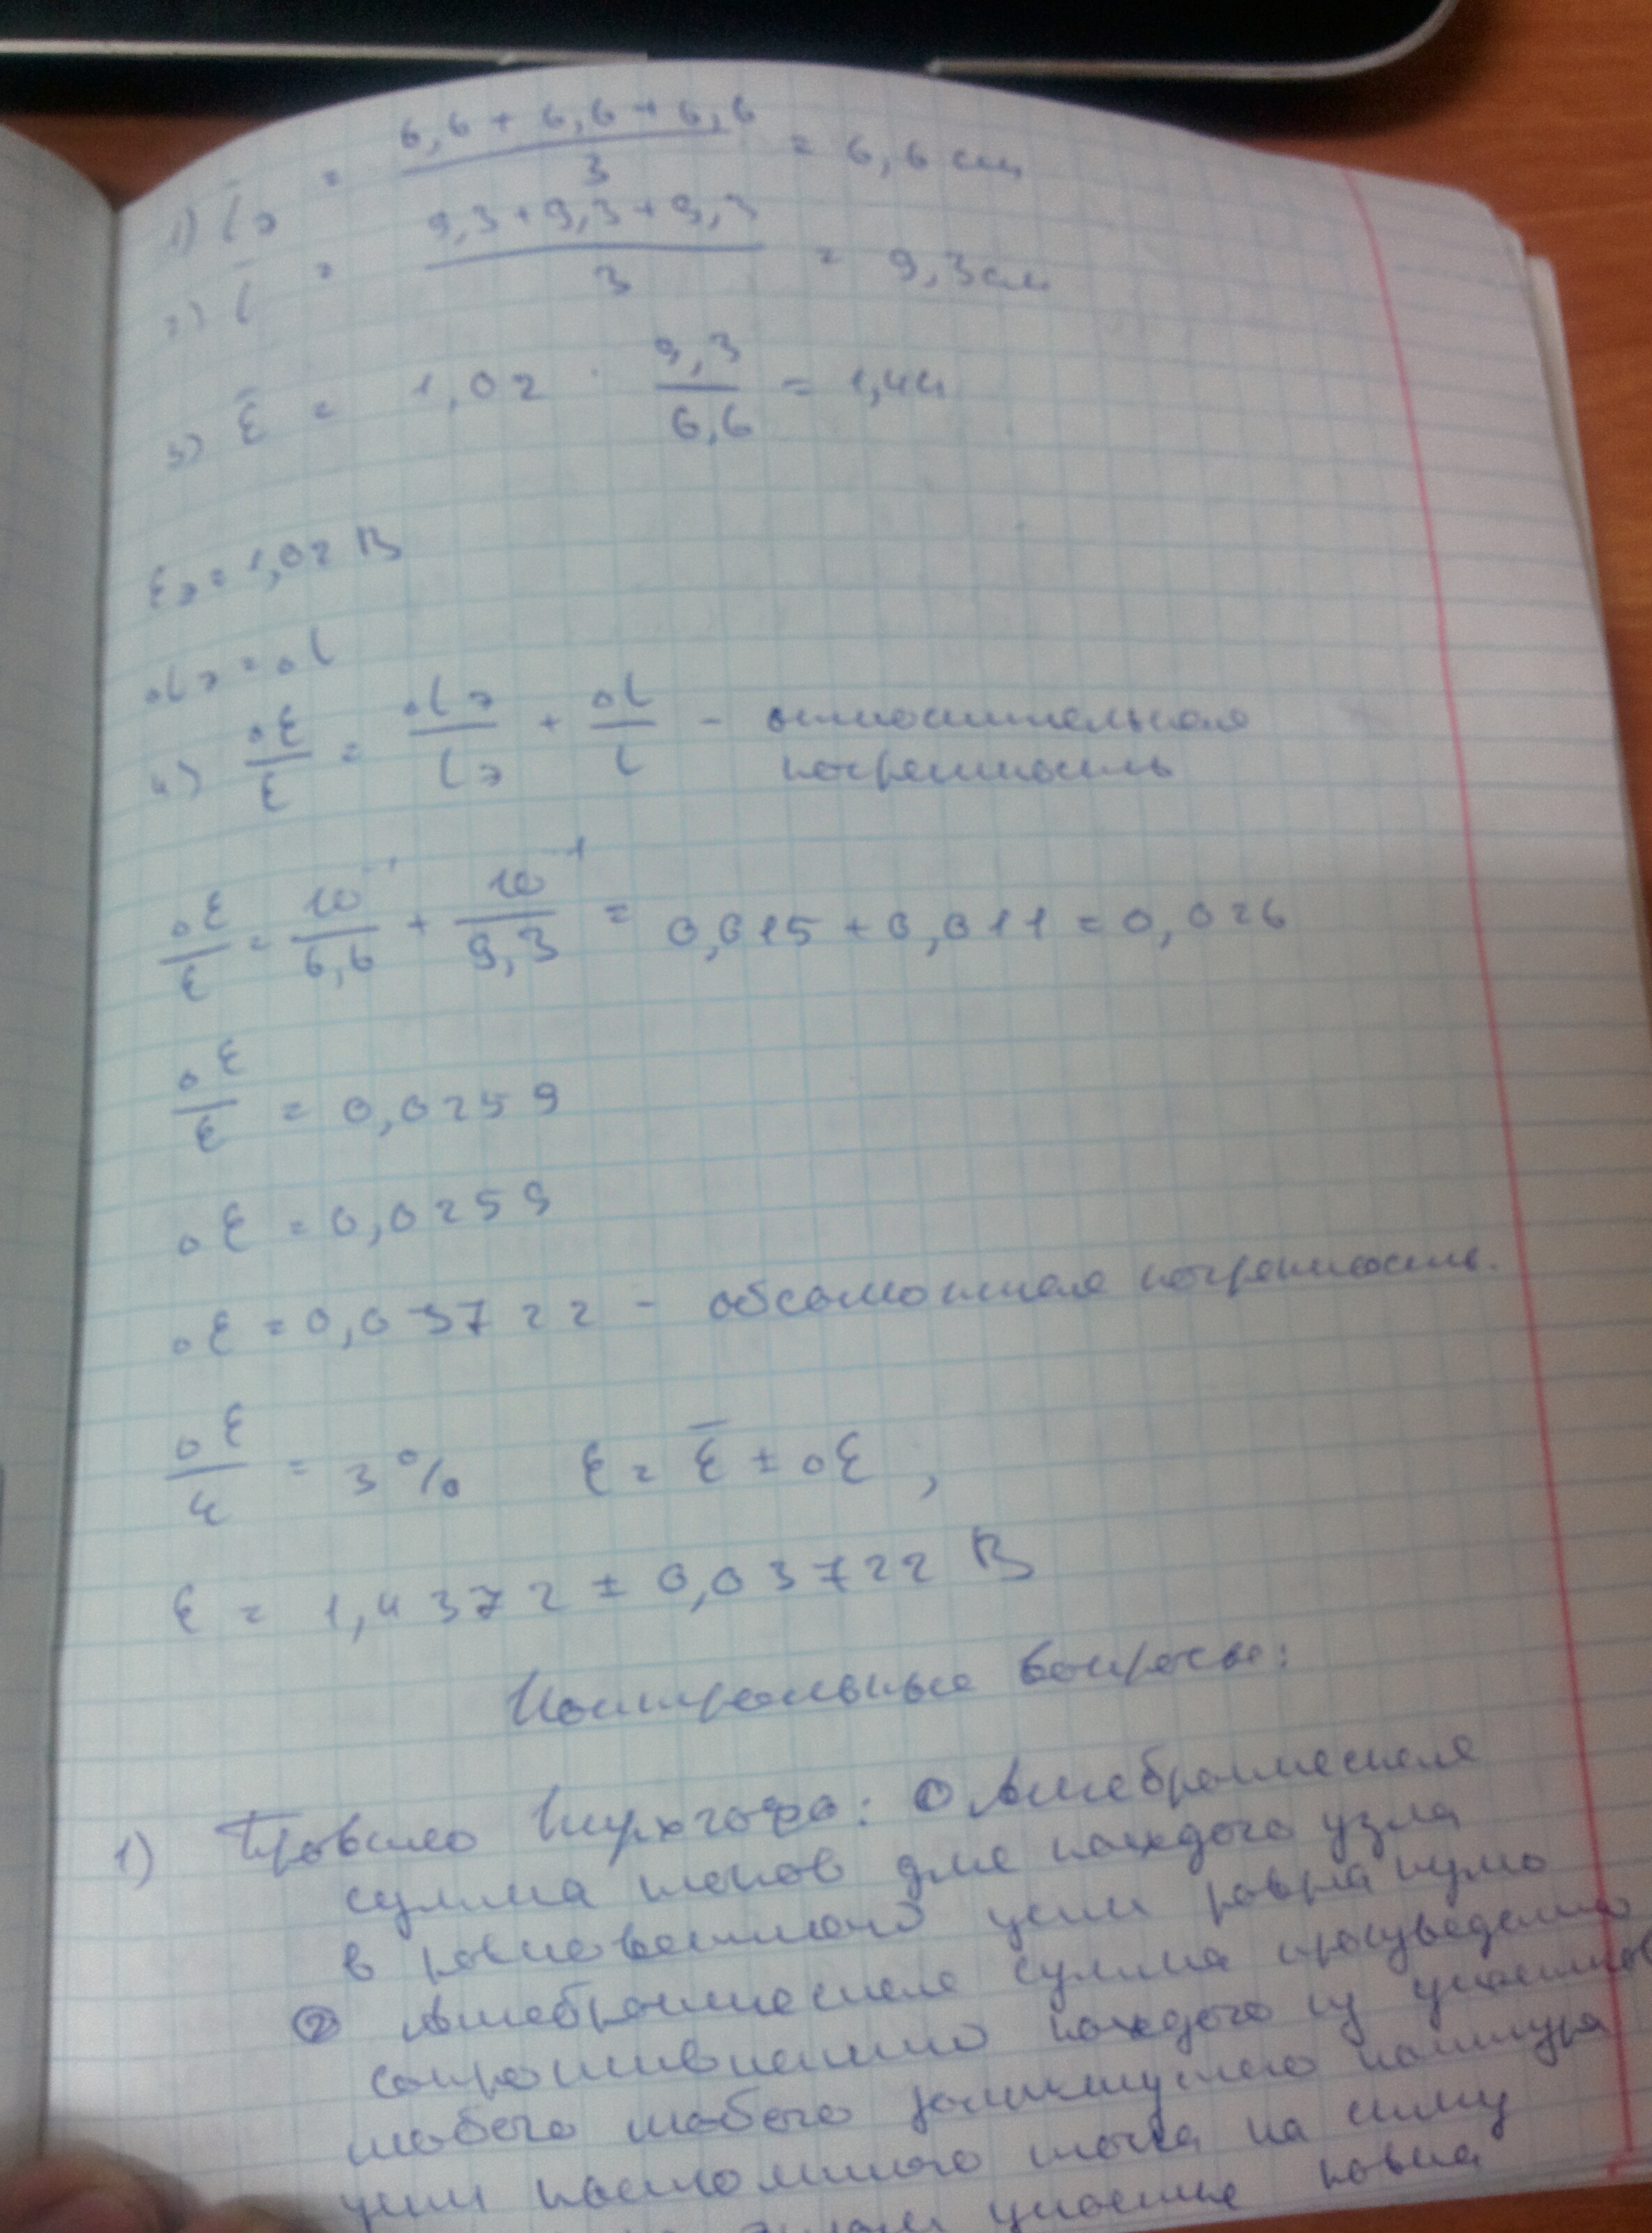 1) l̅э = (6,6 + 6,6 + 6,6)/3 = 6,6 см
2) l̅ = (9,3 + 9,3 + 9,3)/3 = 9,3 см
3) ε̅ = 1,02 · 9,3/6,6 = 1,44
εэ = 1,02 В
Δlэ = Δl
4) Δε/ε = Δlэ/lэ + Δl/l - относительная
погрешность
Δε/ε = 10⁻¹/6,6 + 10⁻¹/9,3 = 0,015 + 0,011 = 0,026
Δε/ε = 0,0259
Δε = 0,0259
Δε = 0,03722 - абсолютная погрешность.
Δε/ε = 3% ε = ε̅ ± Δε ,
ε = 1,4372 ± 0,03722 В
Контрольные вопросы:
1) Правило Кирхгофа: ① Алгебраическая
сумма токов для каждого узла
в разветвленной цепи равна нулю
② Алгебраическая сумма произведений
сопротивлений каждого из участков
любого любого замкнутого контура
цепи постоянного тока на силу
участке равна